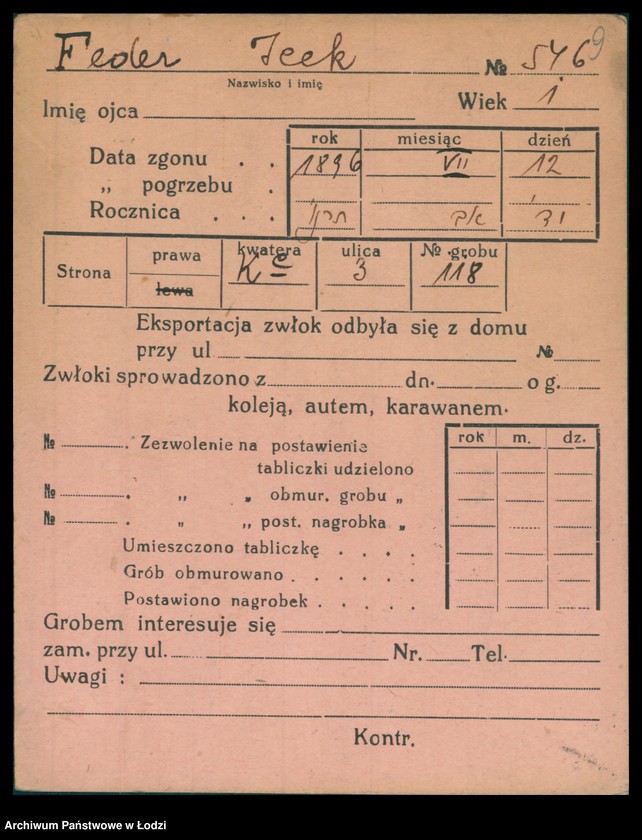 Feder Icek № 5469
Nazwisko i imię
Imię ojca Wiek 1
rok miesiąc dzień
Data zgonu . . 1896 VII 12
„ pogrzebu .
Rocznica . . . אב
Strona prawa lewa kwatera K ulica 3 № grobu 118
Eksportacja zwłok odbyła się z domu
przy ul №
Zwłoki sprowadzono z dn. o g.
koleją, autem, karawanem.
rok m. dz.
№ . Zezwolenie na postawienie
tabliczki udzielono
№ . „ „ obmur. grobu „
№ . „ „ post. nagrobka „
Umieszczono tabliczkę . . . .
Grób obmurowano . . . . .
Postawiono nagrobek . . . .
Grobem interesuje się
zam. przy ul. Nr. Tel.
Uwagi :
Kontr.
Archiwum Państwowe w Łodzi